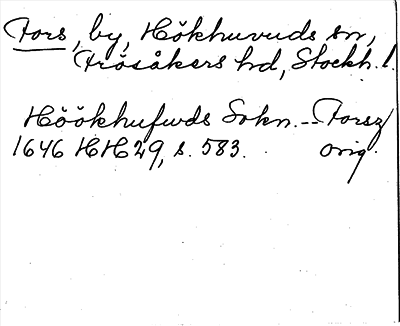 Fors, by, Hökhuvuds sn,
Frösåkers hd, Stockh. l.
Höökhufwds Sokn. -- Forsz
1646 HH29, s. 583. orig.